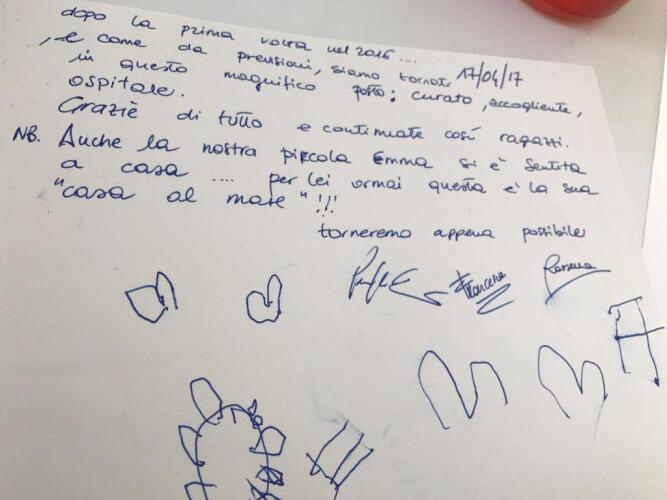 dopo la prima volta nel 2016....
, e come da previsioni, siamo tornati 17/04/17
in questo magnifico posto: curato, accogliente,
ospitale.
Grazie di tutto e continuate così ragazzi.
NB. Anche la nostra piccola Emma si è sentita
a casa .... per lei ormai questa è la sua
"casa al mare" !!!
torneremo appena possibile
Francesca
EMMA